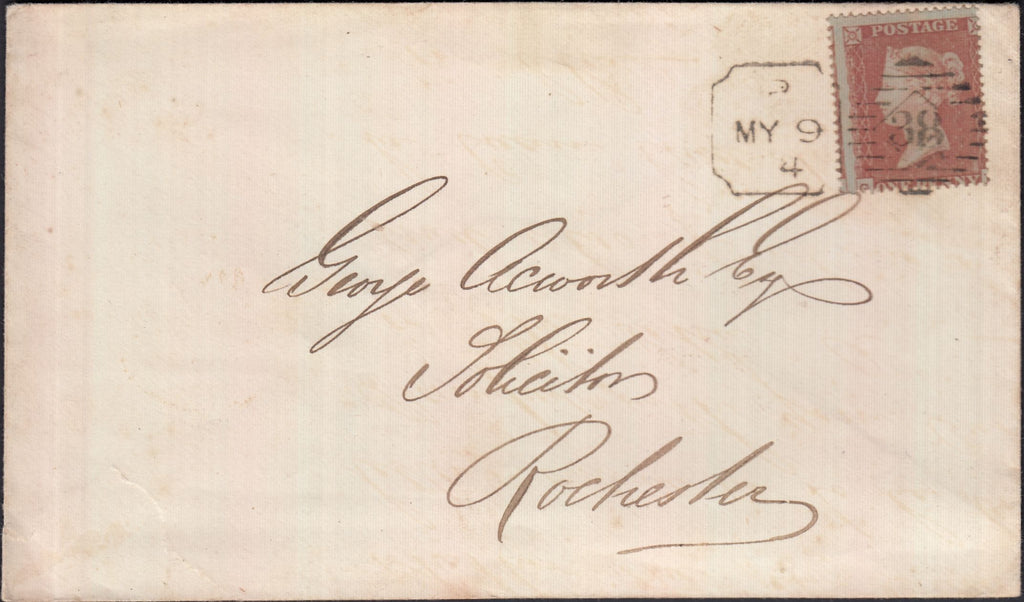 POSTAGE
MY 9
4
38
George Acworth Esq
Solicitor
Rochester